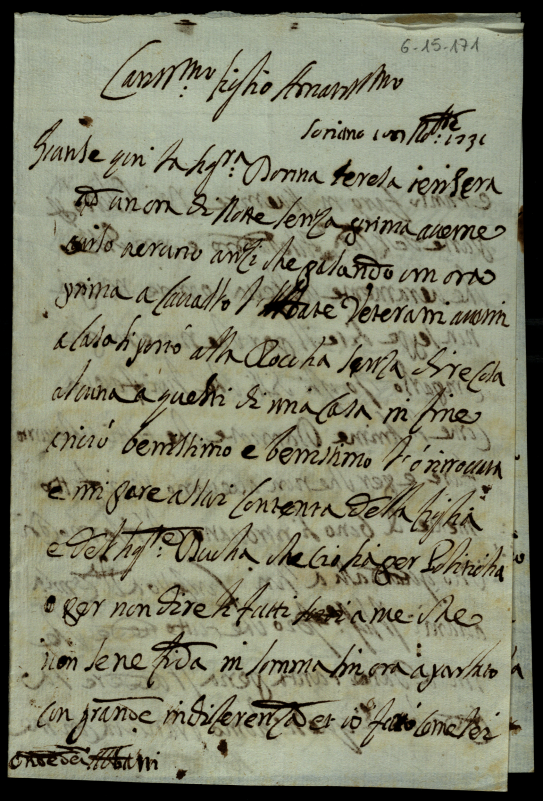 6-15-171
Cariss:mo figlio Amatissmo
Soriano 9bre 1731
Giunse qui la Sigra Donna Teresa ierisera
ad un ora di notte senza prima averne
avviso a veruno anzi che pasando un ora
prima a Cavallo l'Abate Veterani avanti
a Casa si portò alla Roccha senza dire cosa
alcuna a questi di una Casa in fine
arrivò benissimo e benissimo l'ò ritrovata
e mi pare assai Contenta della figlia
e del Sigre Ducha che ciò sia per Politicha
o per non dire li fatti a me che
non se ne fida in somma sin ora a parlato
con grande indiferenza et io fatto come lei